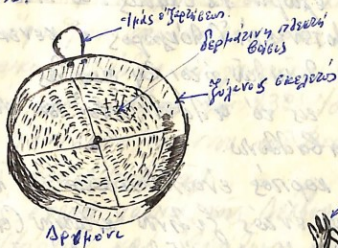 ἱμάς ἐξαρτήσεως
δερμάτινη πλεκτή
βάσις
ξύλινος σκελετός
Δρυμόνι